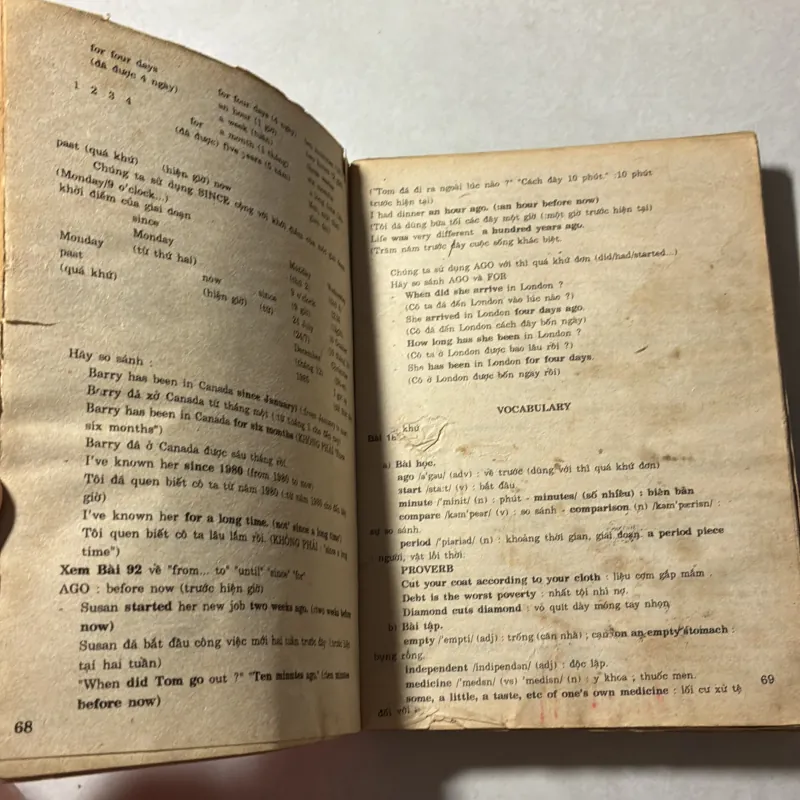 for four days
(đã được 4 ngày)
1 2 3 4
for four days (4 ngày)
an hour (1 giờ)
a week (tuần)
for a month (1 tháng)
(đã được) five years (5 năm)
past (quá khứ) (hiện giờ) now
Chúng ta sử dụng SINCE cộng với khởi điểm của
(Monday/9 o'clock...)
khởi điểm của giai đoạn
since
Monday Monday
past (từ thứ hai)
(quá khứ) now
(hiện giờ) since
(từ)
Monday
(thứ 2)
9 o'clock
(9 giờ)
24 July
(24/7)
December
(tháng 12)
1985
Hãy so sánh :
Barry has been in Canada since January) (from January
Barry đã xở Canada từ tháng một (từ tháng 1 cho đến nay)
Barry has been in Canada for six months (KHÔNG PHẢI "since
six months")
Barry đã ở Canada được sáu tháng rồi.
I've known her since 1980 (from 1980 to now)
Tôi đã quen biết cô ta từ năm 1980 (từ năm 1980 cho đến bây
giờ)
I've known her for a long time. (not 'since a long time)
Tôi quen biết cô ta lâu lắm rồi. (KHÔNG PHẢI "since a long
time")
Xem Bài 92 về "from... to" "until" "since" "for"
AGO : before now (trước hiện giờ)
Susan started her new job two weeks ago. (:two weeks before
now)
Susan đã bắt đầu công việc mới hai tuần trước đây (trước hiện
tại hai tuần)
"When did Tom go out ?" "Ten minutes ago." (:ten minutes
before now)
68
("Tom đã đi ra ngoài lúc nào ?" "Cách đây 10 phút." :10 phút
trước hiện tại)
I had dinner an hour ago. (:an hour before now)
(Tôi đã dùng bữa tối các đây một giờ (:một giờ trước hiện tại)
Life was very different a hundred years ago.
(Trăm năm trước đây cuộc sống khác biệt.
Chúng ta sử dụng AGO với thì quá khứ đơn (did/had/started...)
Hãy so sánh AGO và FOR
When did she arrive in London ?
(Cô ta đã đến London vào lúc nào ?)
She arrived in London four days ago.
(Cô đã đến London cách đây bốn ngày)
How long has she been in London ?
(Cô ta ở London được bao lâu rồi ?)
She has been in London for four days.
(Cô ở London được bốn ngày rồi)
VOCABULARY
khứ
Bài
a) Bài học.
ago /ə'gəu/ (adv) : về trước (dùng với thì quá khứ đơn)
start /sta:t/ (v) : bắt đầu.
minute /'minit/ (n) : phút - minutes/ (số nhiều) : biên bản
compare /kəm'peər/ (v) : so sánh - comparison (n) /kəm'pərisn/ :
sự so sánh.
period /'piəriəd/ (n) : khoảng thời gian, giai đoạn. a period piece
người, vật lỗi thời.
PROVERB
Cut your coat according to your cloth : liệu cơm gắp mắm .
Debt is the worst poverty : nhất tội nhì nợ.
Diamond cuts diamond : vỏ quít dày móng tay nhọn.
b) Bài tập.
empty /'empti/ (adj) : trống (căn nhà) ; on an empty stomach :
bụng rỗng.
independent /indipendən/ (adj) : độc lập.
medicine /'medsn/ (vs) 'medisn/ (n) : y khoa ; thuốc men.
some, a little, a taste, etc of one's own medicine : lối cư xử tệ
đối với
69